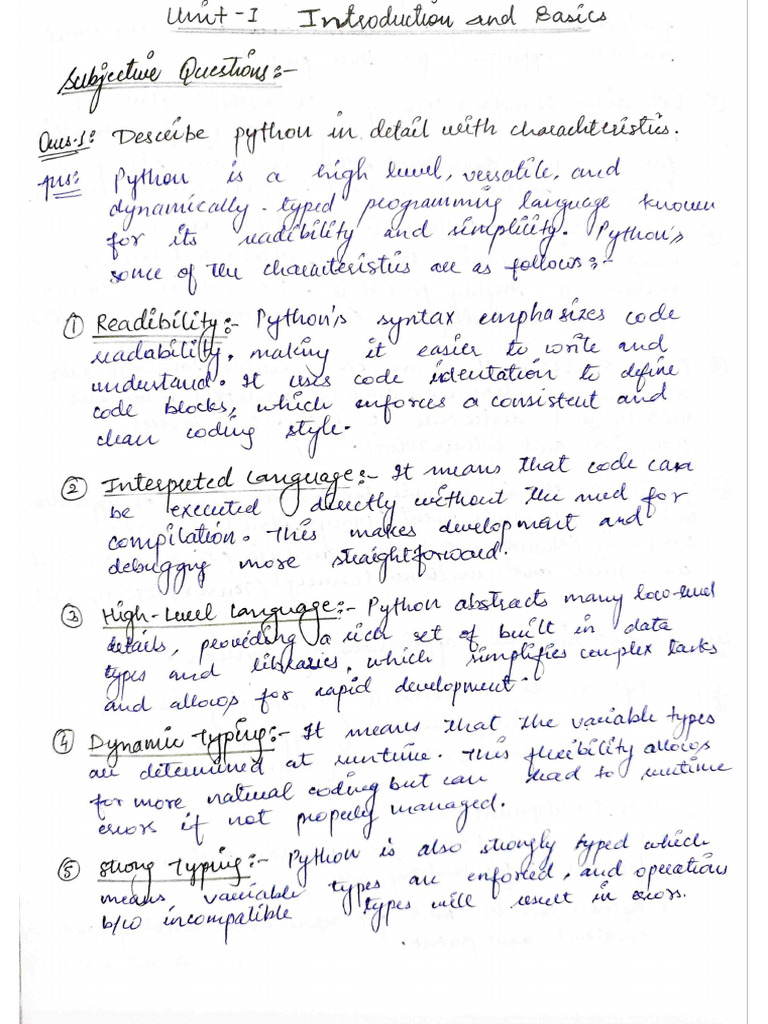 Unit-I Introduction and Basics
Subjective Questions:-
Ques.1: Describe python in detail with charachteristics.
Ans: Python is a high level, versatile, and
dynamically-typed programming language known
for its readibility and simplicity. Python's
some of the characteristics are as follows:-
① Readibility:- Python's syntax emphasizes code
readability, making it easier to write and
understand. It uses code identation to define
code blocks, which enforces a consistent and
clean coding style.
② Interpreted Language:- It means that code can
be executed directly without the need for
compilation. This makes development and
debugging more straightforward.
③ High-Level Language:- Python abstracts many low-level
details, providing a rich set of built in data
types and libraries, which simplifies complex tasks
and allows for rapid development.
④ Dynamic Typing:- It means that the variable types
are determined at runtime. This flexibility allows
for more natural coding but can lead to runtime
errors if not properly managed.
⑤ Strong Typing:- Python is also strongly typed which
means, variable types are enforced, and operations
b/w incompatible types will result in errors.